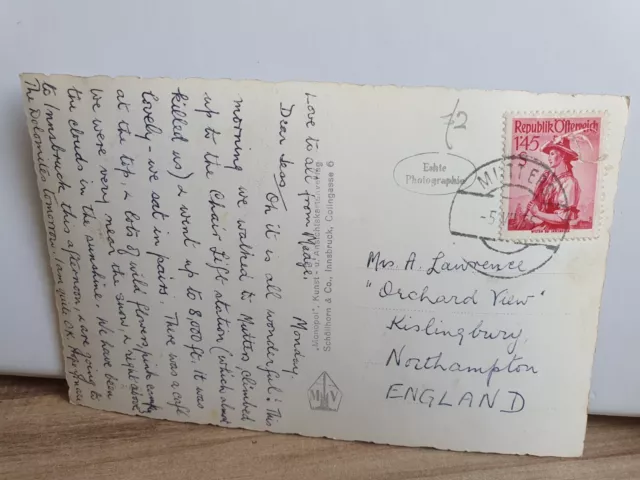 Love to all from Madge.
Monday.
Dear Jess,
Oh it is all wonderful! This
morning we walked to Mutters, climbed
up to the Chair lift station (which almost
killed us) & went up to 8,000 ft. It was
lovely - we sat in pairs. There was a café
at the top, & lots of wild flowers, pink
We were very near the snow, & right above
the clouds in the sunshine. We have been
to Innsbruck this afternoon, & are going to
The Dolomites tomorrow. I am quite OK.
"Alpenpost", Kunst- u. Ansichtskartenverlag
Schöllhorn & Co., Innsbruck, Colingasse 6
M V
72
Echte
Photographie
Republik Österreich
1'45
S
MUTTE
Mrs. A. Lawrence
"Orchard View"
Kislingbury,
Northampton
ENGLAND